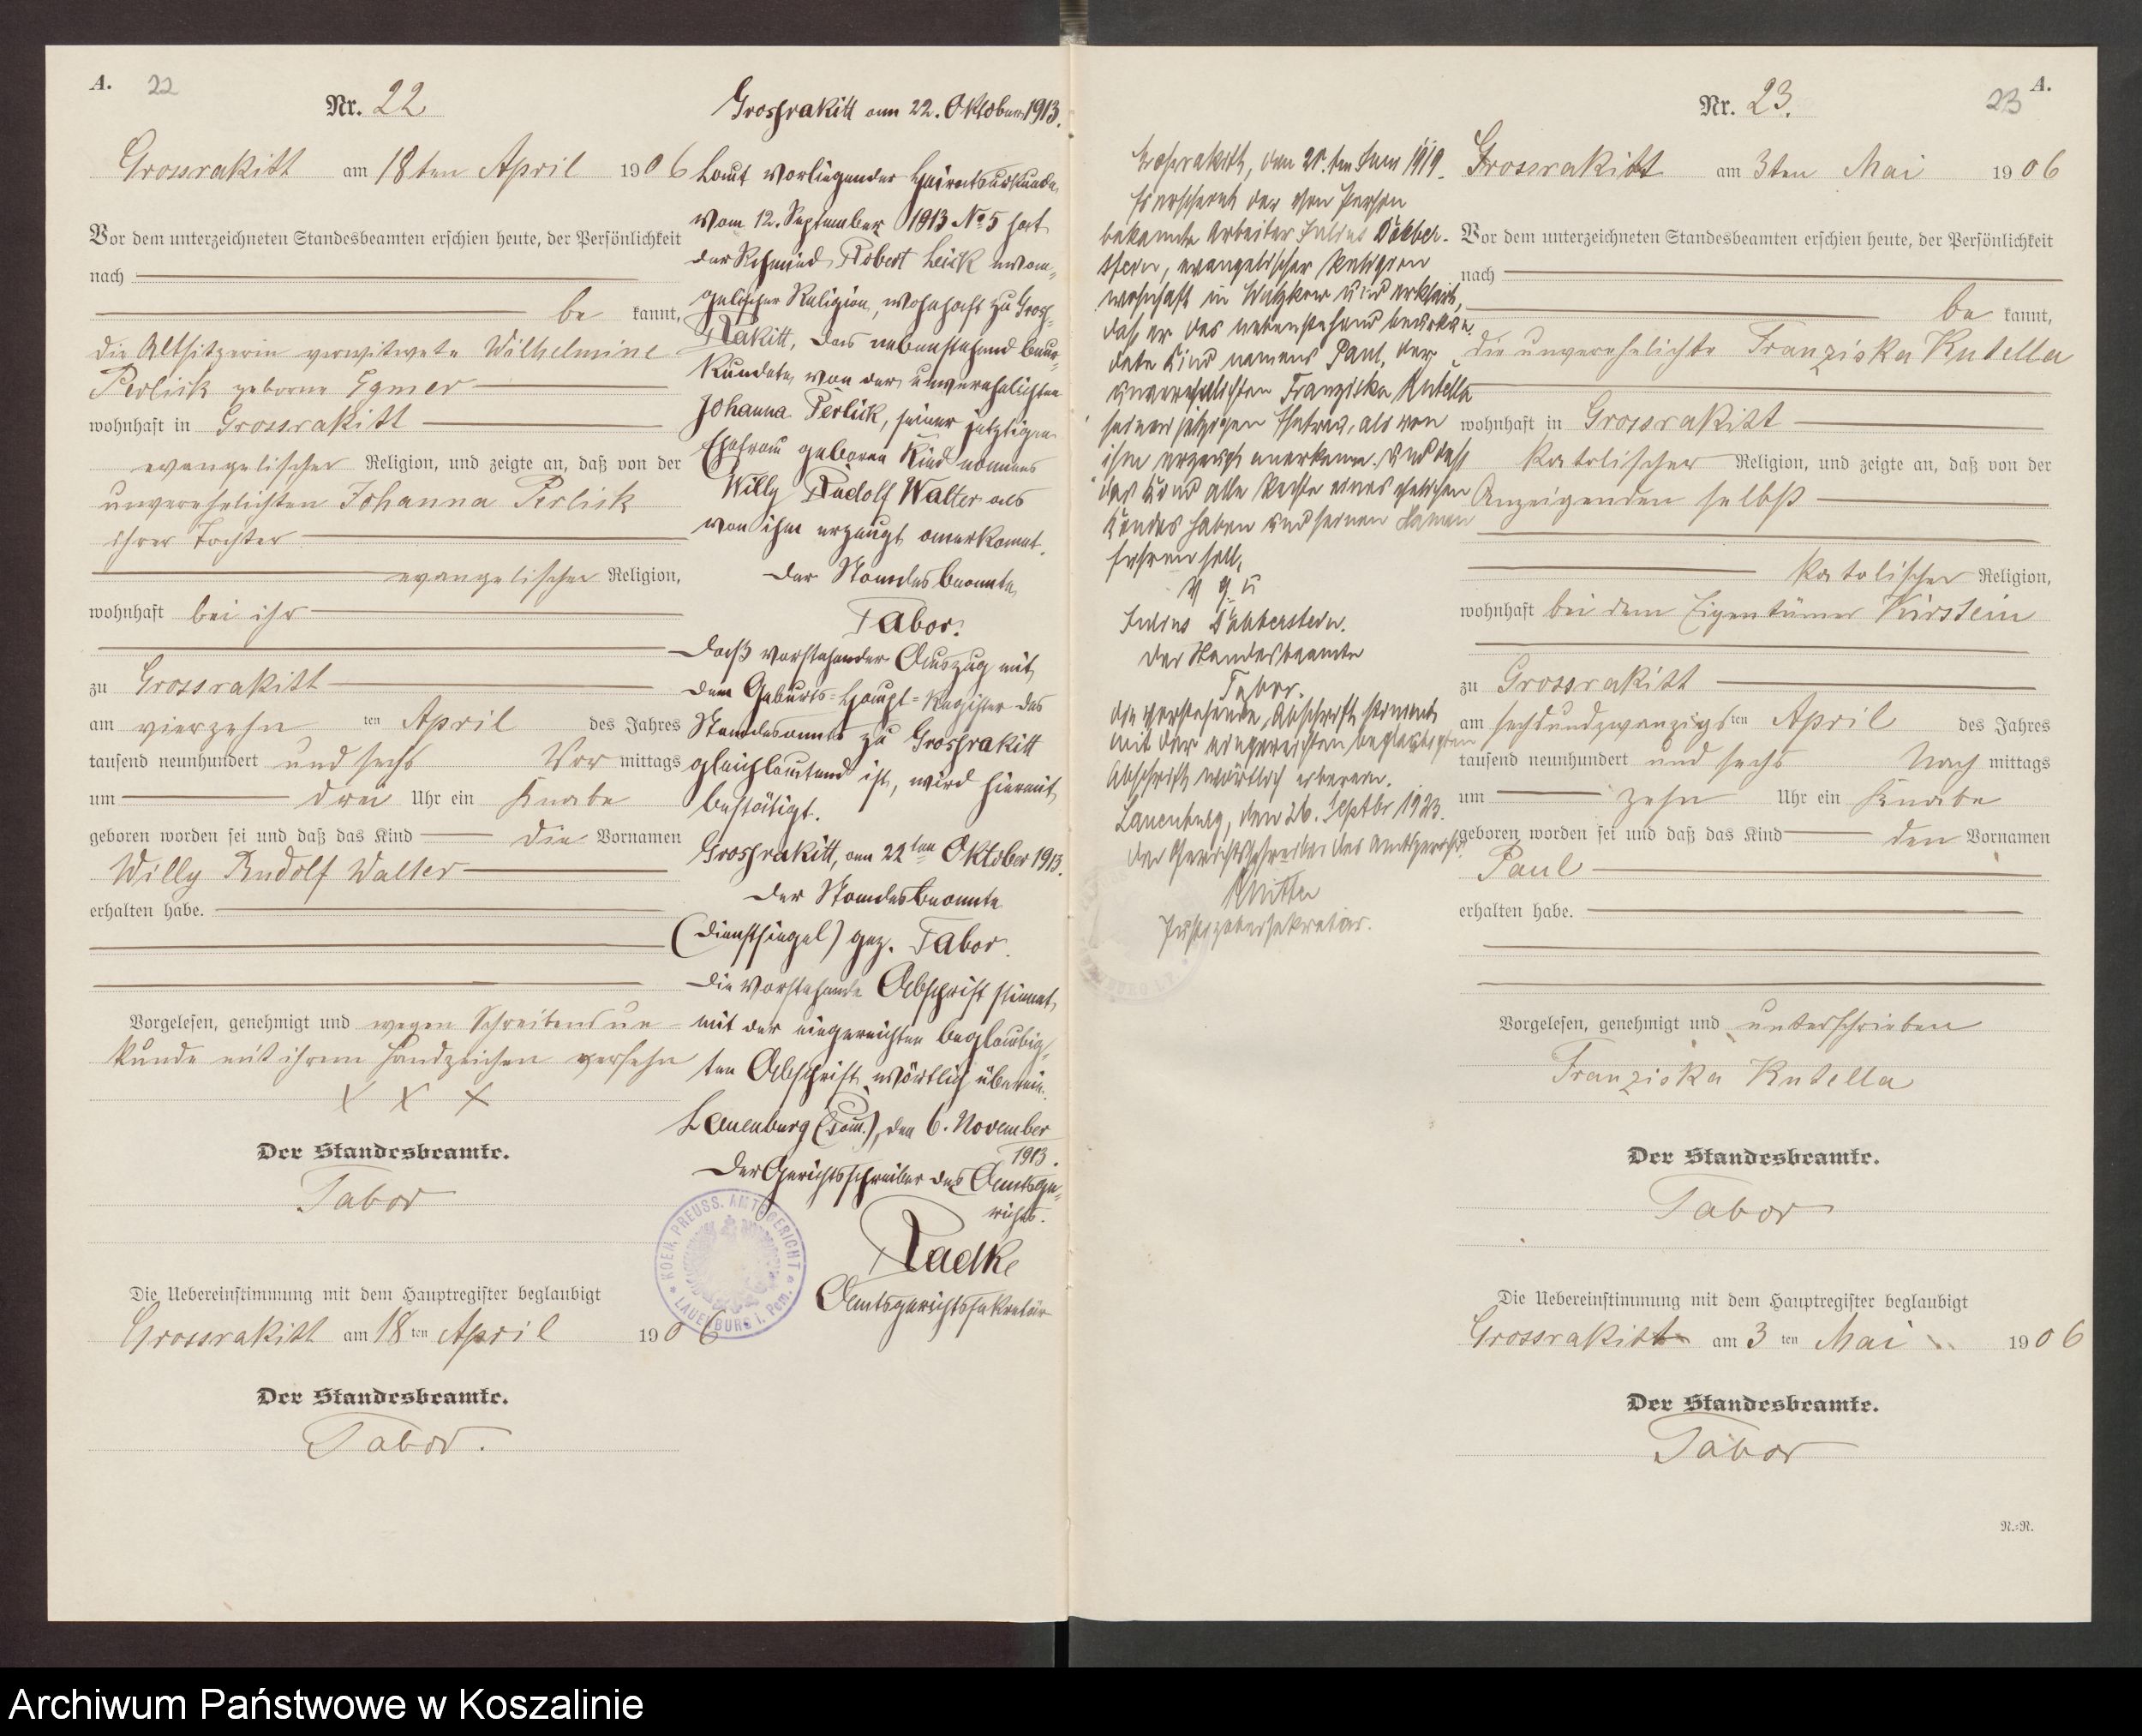 A. 22
Nr. 22
Grossrakitt am 18ten April 1906
Vor dem unterzeichneten Standesbeamten erschien heute, der Persönlichkeit
nach
be kannt,
die Altsitzerin verwitwete Wilhelmine
Perlick geborne
wohnhaft in Grossrakitt
evangelischer Religion, und zeigte an, daß von der
unverehelichten Johanna Perlick
ihrer Tochter
evangelischer Religion,
wohnhaft bei ihr
zu Grossrakitt
am vierzehn ten April des Jahres
tausend neunhundert und sechs Vor mittags
um drei Uhr ein Knabe
geboren worden sei und daß das Kind die Vornamen
Willy Rudolf Walter
erhalten habe.
Vorgelesen, genehmigt und wegen Schreibensun-
kunde mit ihrem Handzeichen versehn
X X X
Der Standesbeamte.
Tabor
Die Uebereinstimmung mit dem Hauptregister beglaubigt
Grossrakitt am 18 ten April 1906
Der Standesbeamte.
Tabor.
Grossrakitt am 22. Oktober 1913.
Laut vorliegender Heiratsurkunde
vom 12. September 1913 No 5 hat
der Schmied Robert Leick evan-
gelischer Religion, wohnhaft zu Gross-
Rakitt, das nebenstehend beur-
kundete, von der unverehelichten
Johanna Perlick, seiner jetzigen
Ehefrau geborene Kind namens
Willy Rudolf Walter als
von ihm erzeugt anerkannt.
Der Standesbeamte
Tabor.
Daß vorstehender Auszug mit
dem Geburts-Haupt-Register des
Standesamts zu Grossrakitt
gleichlautend ist, wird hiermit
bestätigt.
Grossrakitt, am 22ten Oktober 1913.
Der Standesbeamte
(Dienstsiegel) gez. Tabor.
Die vorstehende Abschrift stimmt
mit der eingereichten beglaubig-
ten Abschrift wörtlich überein.
Lauenburg (Pom.), den 6. November
1913.
Der Gerichtsschreiber des Amtsge-
richts.
Radke
Amtsgerichtssekretär
KOEN. PREUSS. AMTSGERICHT * LAUENBURG i. Pom. *
A.
23
Nr. 23.
Grossrakitt, den 21. ten Juni 1919.
Es erschien der von Person
bekannte Arbeiter Julius Döbber-
stein, evangelischer Religion
wohnhaft in und erklärt,
daß er das nebenstehend beurkun-
dete Kind namens Paul, der
unverehelichten Franziska Kutella
seiner jetzigen Ehefrau, als von
ihm erzeugt anerkenne und daß
das Kind alle Rechte eines ehelichen
Kindes haben und seinen Namen
führen soll.
V. g. u.
Julius Döbberstein.
Der Standesbeamte
Tabor.
Die vorstehende Abschrift stimmt
mit der eingereichten beglaubigten
Abschrift wörtlich überein.
Lauenburg, den 26. Septbr 1923.
Der Gerichtsschreiber des Amtsgerichts.
Justizobersekretär.
Grossrakitt am 3ten Mai 1906
Vor dem unterzeichneten Standesbeamten erschien heute, der Persönlichkeit
nach
be kannt,
die unverehelichte Franziska Kutella
wohnhaft in Grossrakitt
katolischer Religion, und zeigte an, daß von der
Anzeigenden selbst
katolischer Religion,
wohnhaft bei dem Eigentümer Kirstein
zu Grossrakitt
am sechsundzwanzigs ten April des Jahres
tausend neunhundert und sechs Nach mittags
um zehn Uhr ein Knabe
geboren worden sei und daß das Kind den Vornamen
Paul
erhalten habe.
Vorgelesen, genehmigt und unterschrieben
Franziska Kutella
Der Standesbeamte.
Tabor
Die Uebereinstimmung mit dem Hauptregister beglaubigt
Grossrakitt am 3 ten Mai 1906
Der Standesbeamte.
Tabor
N.-N.
Archiwum Państwowe w Koszalinie